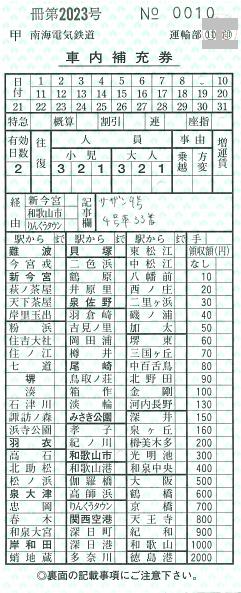 冊第2023号 No 0010
甲 南海電気鉄道 運輸部
車内補充券
月 1 2 3 4 5 6 7 8 9 10
日 11 12 13 14 15 16 17 18 19 20
付 21 22 23 24 25 26 27 28 29 30
11 12 31
特急 概算 割引 連 座指
有効日数 往復 人員 事由 増運賃
小児 大人 乗越 方変
2 3 2 1 3 2 1
経由 新今宮 和歌山市 りんくうタウン 記事欄 サザン9号
4号車33番
駅から まで 駅から まで 駅から まで 手
難波 貝塚 東松江 領収額(円)
今宮戎 二色浜 中松江 なし
新今宮 鶴原 八幡前 10
萩ノ茶屋 井原里 西ノ庄 20
天下茶屋 泉佐野 二里ヶ浜 30
岸里玉出 羽倉崎 磯ノ浦 40
粉浜 吉見ノ里 加太 50
住吉大社 岡田浦 堺東 60
住ノ江 樽井 三国ヶ丘 70
七道 尾崎 中百舌鳥 80
堺 鳥取ノ荘 北野田 90
湊 箱作 金剛 100
石津川 淡輪 河内長野 130
諏訪ノ森 みさき公園 深井 150
浜寺公園 孝子 泉ヶ丘 160
羽衣 紀ノ川 栂美木多 200
高石 和歌山市 光明池 300
北助松 和歌山港 和泉中央 400
松ノ浜 伽羅橋 大阪 500
泉大津 高師浜 鶴橋 600
忠岡 りんくうタウン 京橋 700
春木 関西空港 天王寺 800
和泉大宮 深日町 紀和 900
岸和田 深日港 和歌山 1000
蛸地蔵 多奈川 徳島港 2000
◎裏面の記載事項にご注意下さい。